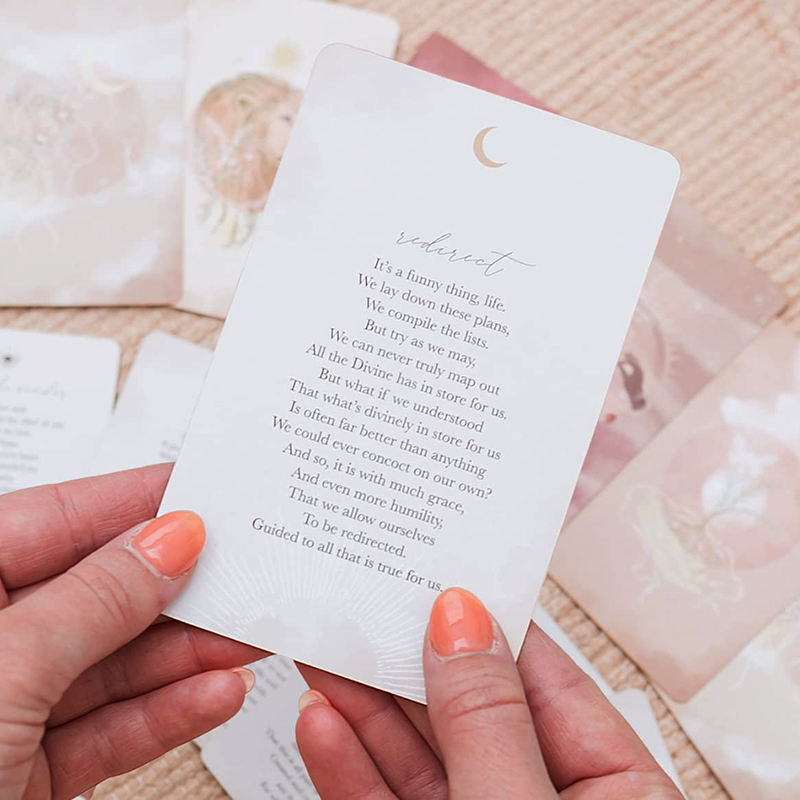 redirect
It's a funny thing, life.
We lay down these plans,
We compile the lists.
But try as we may,
We can never truly map out
All the Divine has in store for us.
But what if we understood
That what's divinely in store for us
Is often far better than anything
We could ever concoct on our own?
And so, it is with much grace,
And even more humility,
That we allow ourselves
To be redirected.
Guided to all that is true for us.